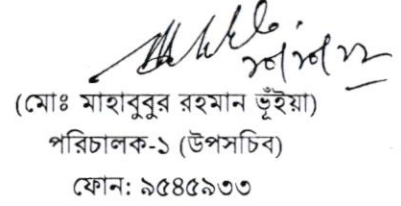 (মোঃ মাহাবুবুর রহমান ভূঁইয়া)
পরিচালক-১ (উপসচিব)
ফোন: ৯৫৪৫৯৩৩